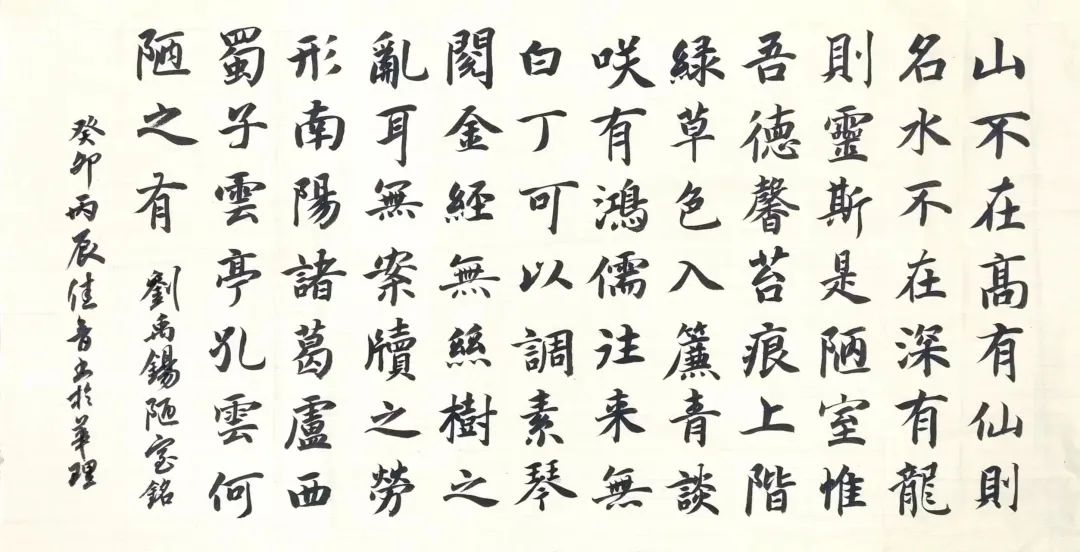 山不在髙有仙則
名水不在深有龍
則靈斯是陋室惟
吾德馨苔痕上階
緑草色入簾青談
咲有鴻儒往来無
白丁可以調素琴
閱金經無絲樹之
亂耳無案牘之勞
形南陽諸葛盧西
蜀子雲亭孔雲何
陋之有 劉禹錫陋室銘
癸卯丙辰佳音书於華理